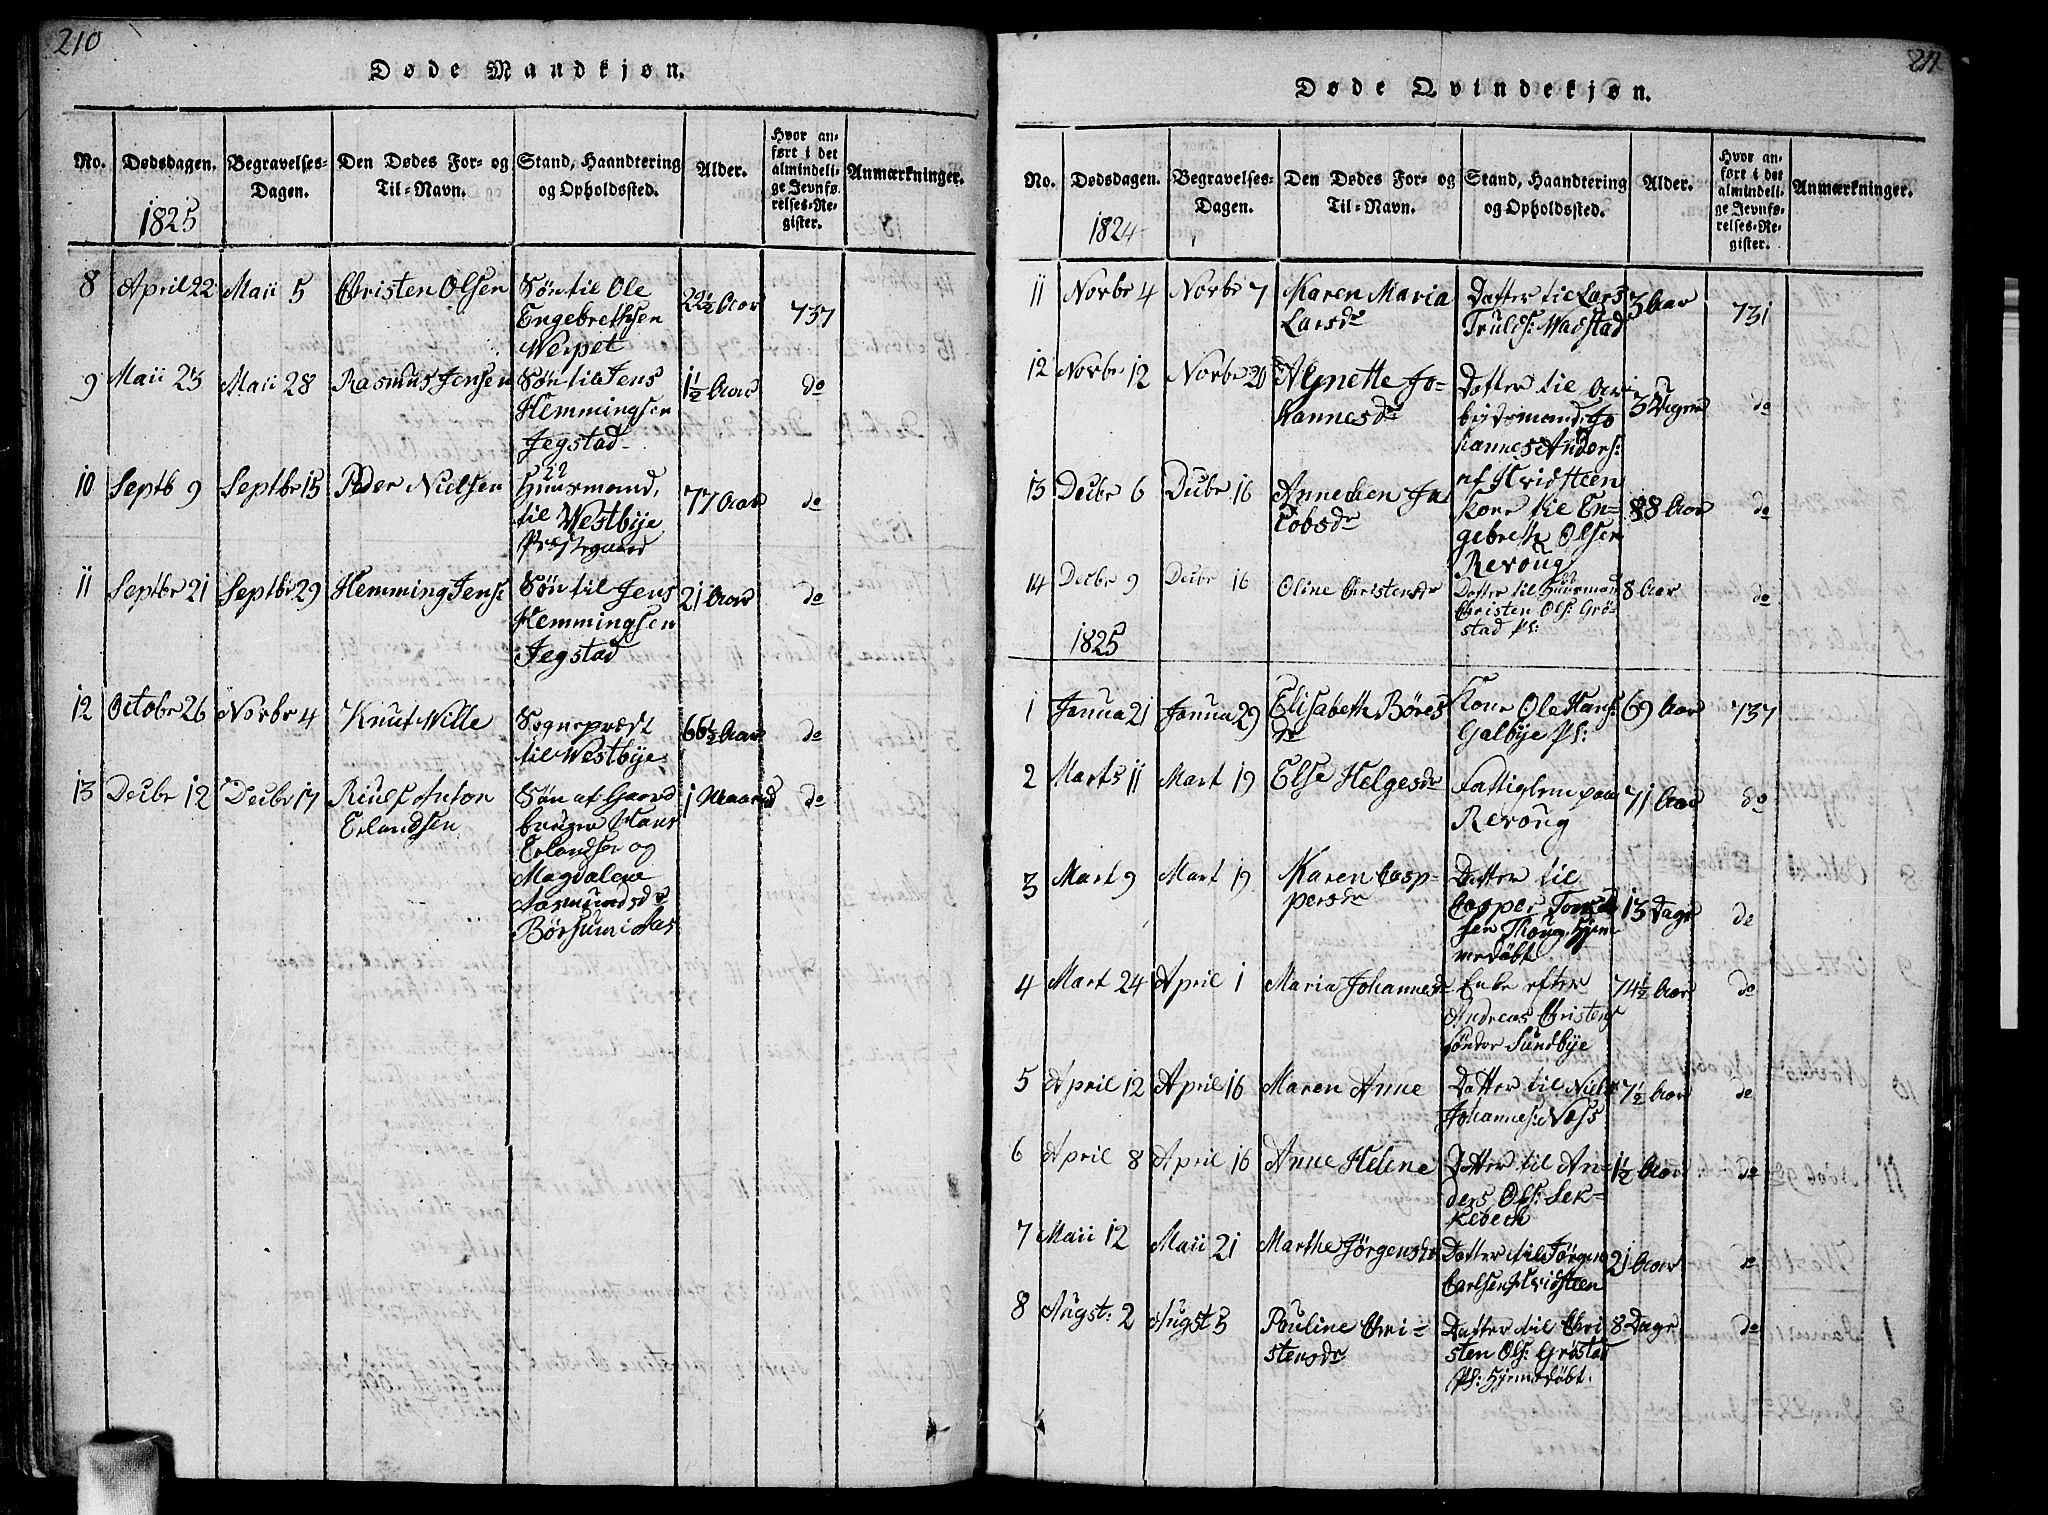 210
Døde Mandkjøn.
No.
Dødsdagen.
1825
Begravelses-
Dagen.
Den Dødes For- og
Til-Navn.
Stand, Haandtering
og Opholdssted.
Alder.
Hvor an-
ført i det
almindeli-
ge Jevnfø-
relses-Re-
gister.
Anmærkninger.
8 April 22 Maii 5 Christen Olsen Søn til Ole
Engebrethsen
Werpet
22½ Aar 737
9 Maii 23 Maii 28 Rasmus Jensen Søn til Jens
Hemmingsen
Jegstad
1½ Aar do
10 Septb 9 Septbr 15 Peder Nielsen Huusmand
til Westbye
Præstegaard
77 Aar do
11 Septbr 21 Septbr 29 Hemming Jens: Søn til Jens
Hemmingsen
Jegstad
21 Aar do
12 Octobr 26 Novbr 4 Knut Wille Sognepræst
til Westbye
66½ Aar do
13 Decbr 12 Decbr 17 Anton
Erlandsen
Søn af Gaard
bruger Hans
Erlandsen og
Magdalene
Aasmundsdr
Børsum i Aas
1 Maaned do
211
Døde Qvindekjøn.
No.
Dødsdagen.
1824
Begravelses-
Dagen.
Den Dødes For- og
Til-Navn.
Stand, Haandtering
og Opholdssted.
Alder.
Hvor an-
ført i det
almindeli-
ge Jevnfø-
relses-Re-
gister.
Anmærkninger.
11 Novbr 4 Novbr 7 Karen Maria
Larsdr
Datter til Lars
Truls: Wadstad
3 Aar 731
12 Novbr 12 Novbr 20 Agnette Jo-
hannesdr
Datter til Ar
bejdsmand Jo
hannes Anders:
af Hvidsteen
Dage do
13 Decbr 6 Decbr 16 Annechen Ja
cobsdr
Kone til En-
gebreth Olsen
Revoug
88 Aar do
14 Decbr 9 Decbr 16 Oline Christensdr Datter til Huusmand
Christen Ols: Grø-
stad Pl:
8 Aar do
1825
1 Janua 21 Janua 29 Elisabeth Børes
dr
Kone Ole Hans:
Galbye Pl:
69 Aar 737
2 Marts 11 Mart 19 Else Helgesdr Fattiglem paa
Revoug
71 Aar do
3 Mart 9 Mart 19 Karen Casp-
persdr
Datter til
Casper
sen Hjem
medøbt
13 Dage do
4 Mart 24 April 1 Maria Johannesdr Enke efter
Andreas Christens:
Søndor Sundbye
74½ Aar do
5 April 12 April 16 Maren Anne Datter til Niels
Johannes: Næss
7½ Aar do
6 April 8 April 16 Anne Helene Datter til An-
ders Ols: Lek-
kebech
1½ Aar do
7 Maii 12 Maii 21 Marthe Jørgensdr Datter til Jørgen
Carlsen Hvidsteen
21 Aar do
8 Augst: 2 Augst 5 Pauline Chri-
stensdr
Datter til Chri
sten Ols: Grøstad
Pl: Hjemedøbt.
8 Dage do